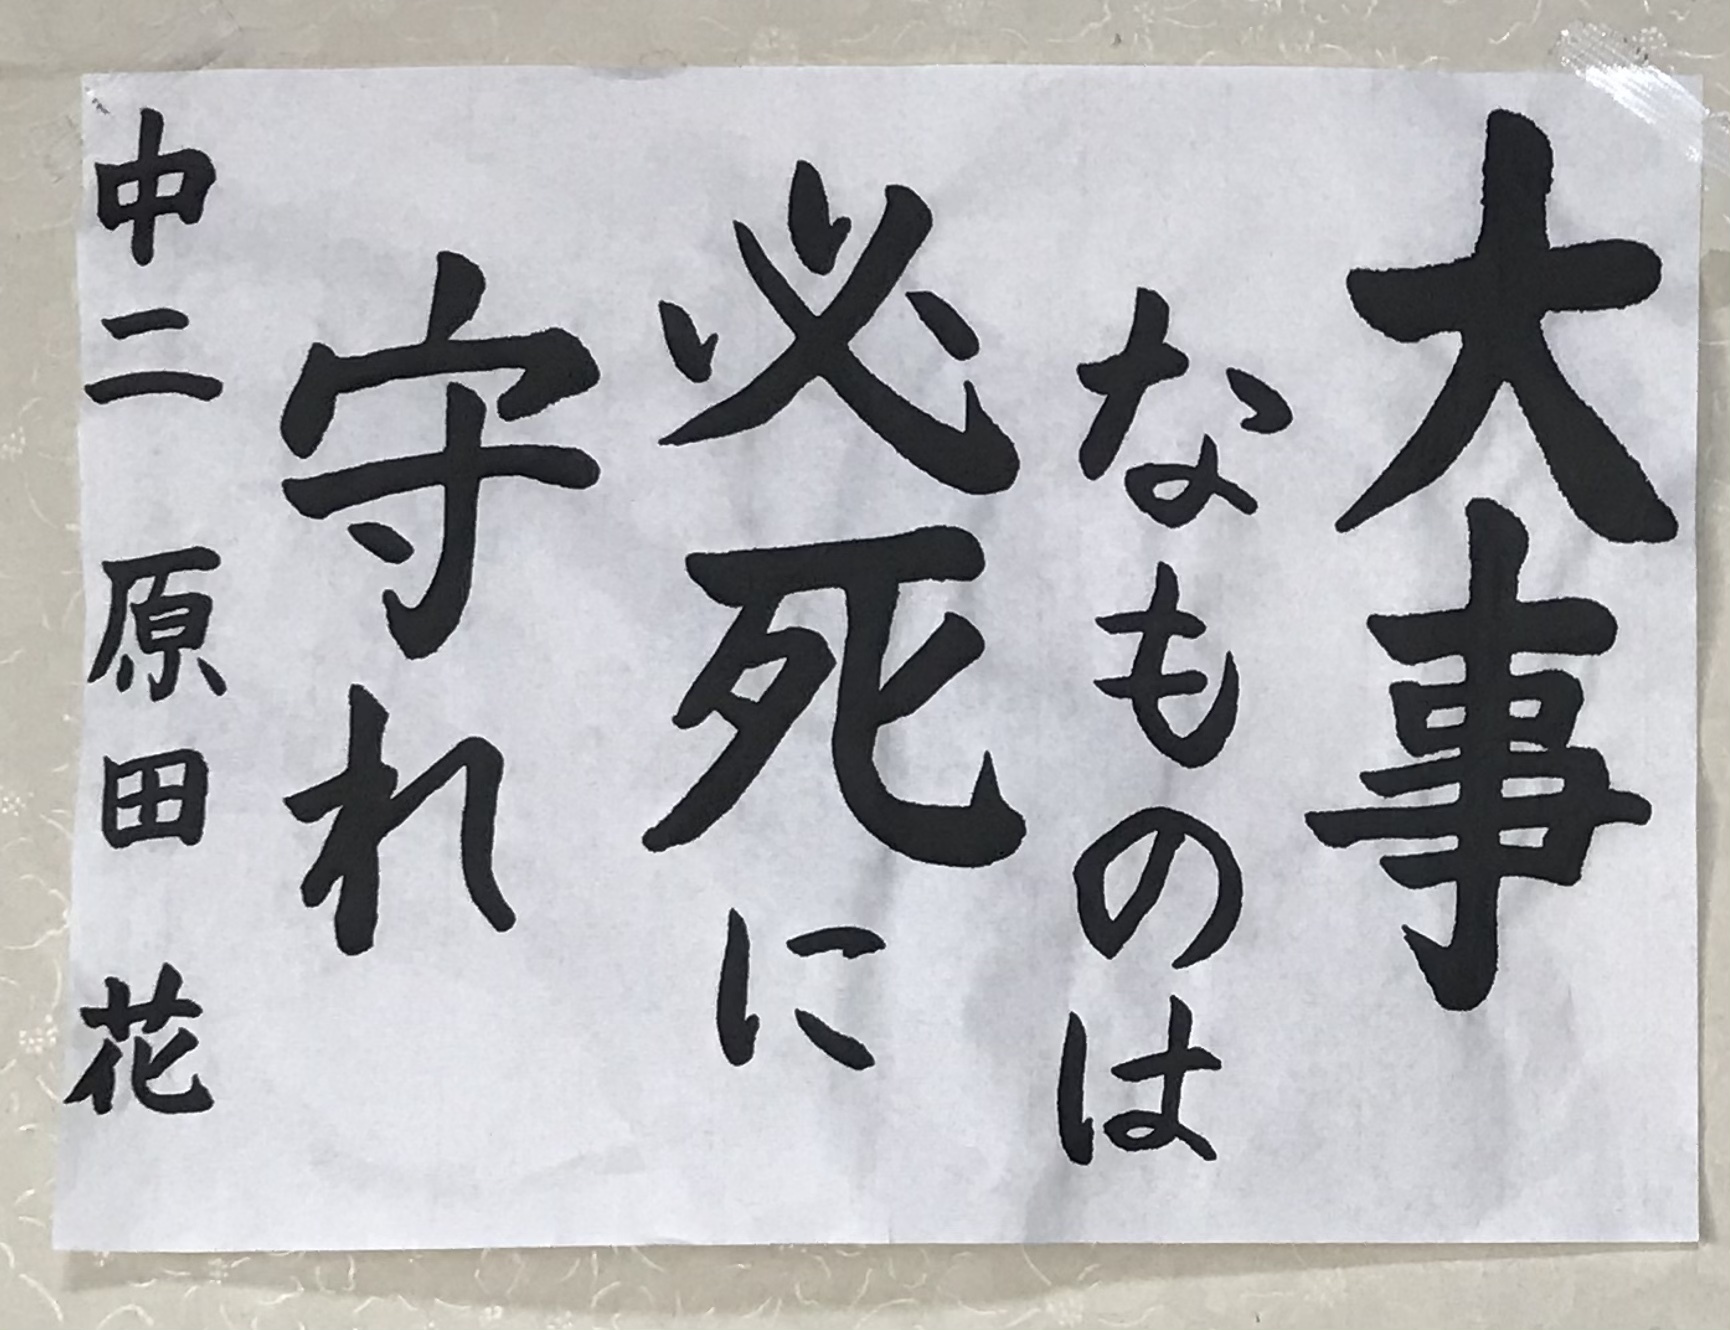 大事
なものは
必死に
守れ
中二 原田 花